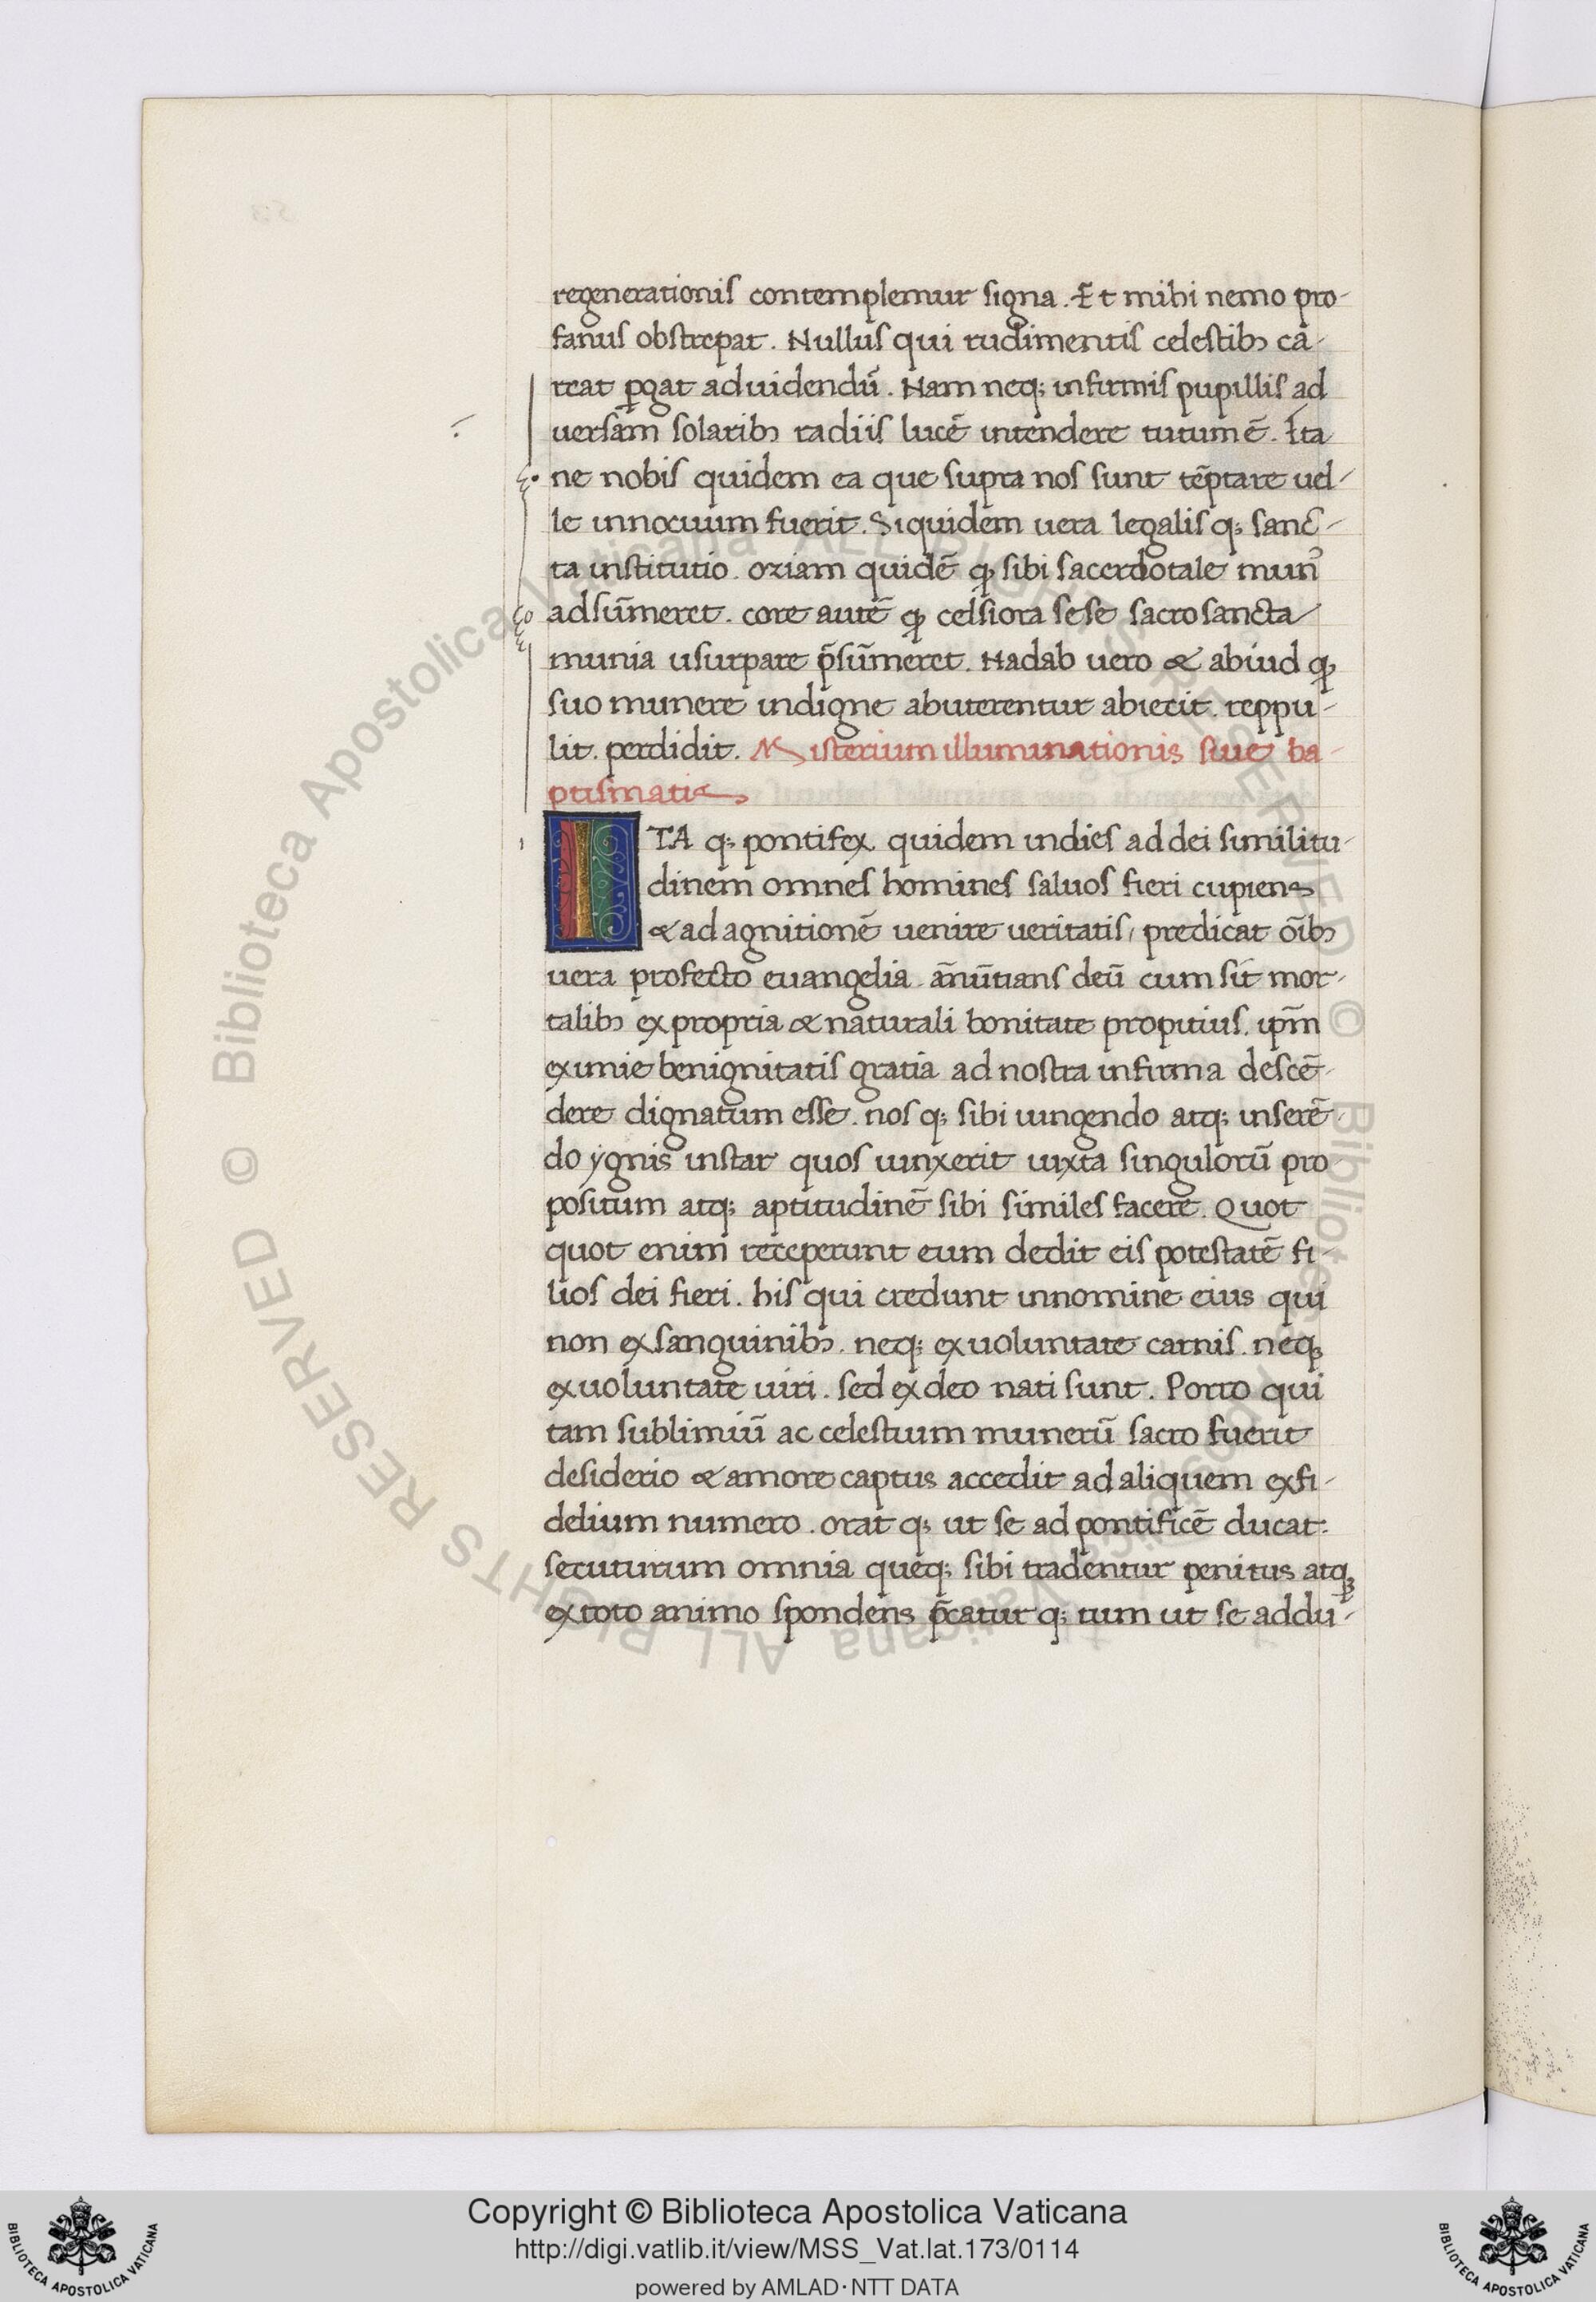 regenerationis contemplemur signa. Et mihi nemo pro-
fanus obstrepat. Nullus qui rudimentis celestibꝫ ca-
reat ꝑgat ad uidendū. Nam neqꝫ infirmis pupillis ad
uersam solaribꝫ radiis lucē intendere tutum ē. Ita
ne nobis quidem ea que supra nos sunt tēptare uel-
le innocuum fuerit. Siquidem uera legalisqꝫ sanc-
ta institutio. oziam quidē ꝙ sibi sacerdotale munꝰ
adsūmeret. core autē ꝙ celsiora sese sacrosancta
munia usurpare p̄sūmeret. Nadab uero & abiud ꝙ
suo munere indigne abuterentur abiecit. reppu-
lit. perdidit. Misterium illuminationis siue ba-
ptismatis
ITA qꝫ pontifex quidem indies ad dei similitu-
dinem omnes homines saluos fieri cupiens
& ad agnitionē uenire ueritatis, predicat oībꝫ
uera profecto euangelia. ānūtians deū cum sit mor-
talibꝫ ex propria & naturali bonitate propitius. ip̄m
eximie benignitatis gratia ad nostra infirma descē-
dere dignatum esse. nosqꝫ sibi iungendo atqꝫ inserē-
do ygnis instar quos iunxerit iuxta singulorū pro-
positum atqꝫ aptitudinē sibi similes facere. Quot
quot enim receperunt eum dedit eis potestatē fi-
lios dei fieri. his qui credunt in nomine eius qui
non ex sanguinibꝫ. neqꝫ ex uoluntate carnis. neqꝫ
ex uoluntate uiri. sed ex deo nati sunt. Porro qui
tam sublimiū ac celestium munerū sacro fuerit
desiderio & amore captus accedit ad aliquem ex fi-
delium numero. oratqꝫ ut se ad pontificē ducat:
secuturum omnia queqꝫ sibi tradentur penitus atqꝫ
ex toto animo spondens p̄caturqꝫ tum ut se addu-
© Biblioteca Apostolica Vaticana ALL RIGHTS RESERVED
© Biblioteca Apostolica Vaticana ALL RIGHTS RESERVED
Copyright © Biblioteca Apostolica Vaticana
http://digi.vatlib.it/view/MSS_Vat.lat.173/0114
powered by AMLAD·NTT DATA
BIBLIOTECA APOSTOLICA VATICANA
BIBLIOTECA APOSTOLICA VATICANA